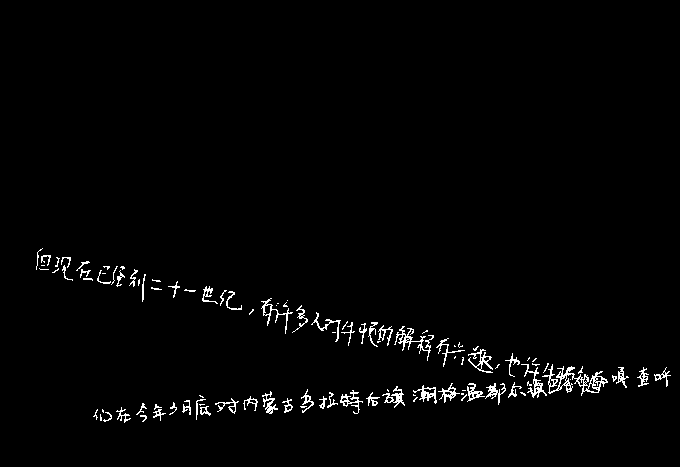 但现在已经到二十一世纪，有许多人对牛顿的解释有兴趣，也许牛顿
们在今年3月底对内蒙古乌拉特后旗潮格温都尔镇巴音嘎查听